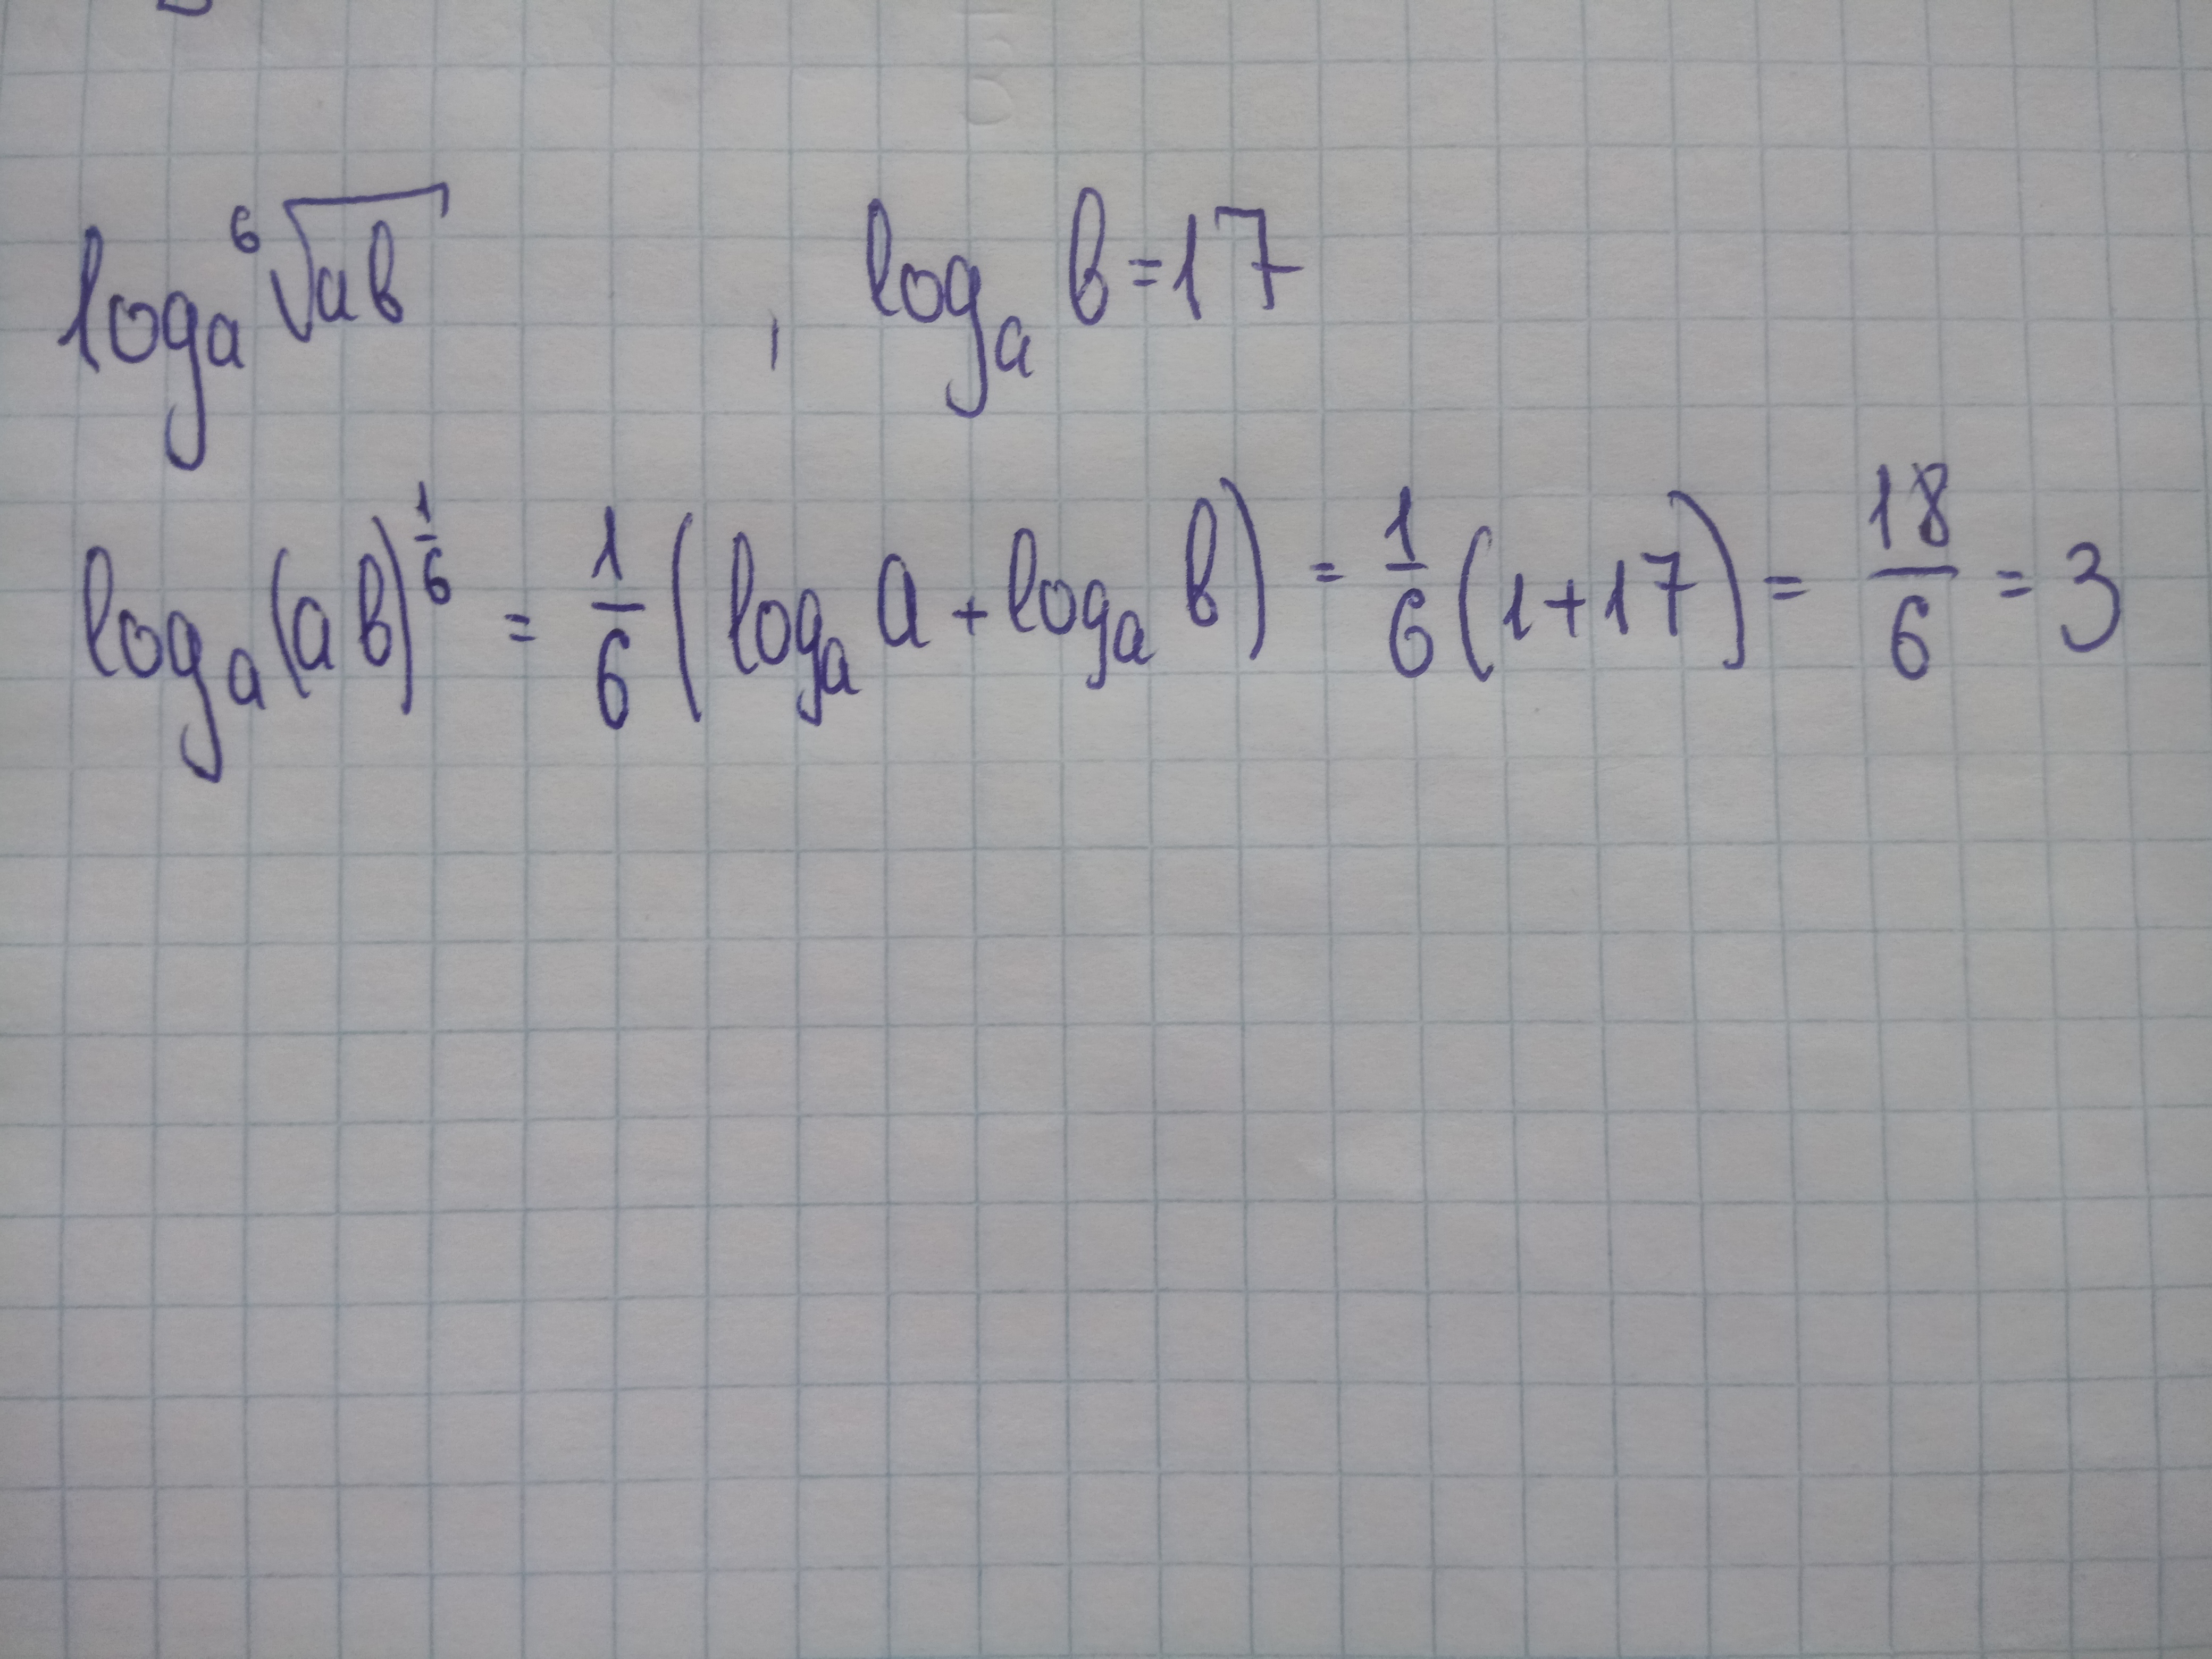 logₐ ⁶√ab , logₐ b = 17
logₐ (ab)^(1/6) = 1/6 (logₐ a + logₐ b) = 1/6 (1 + 17) = 18/6 = 3